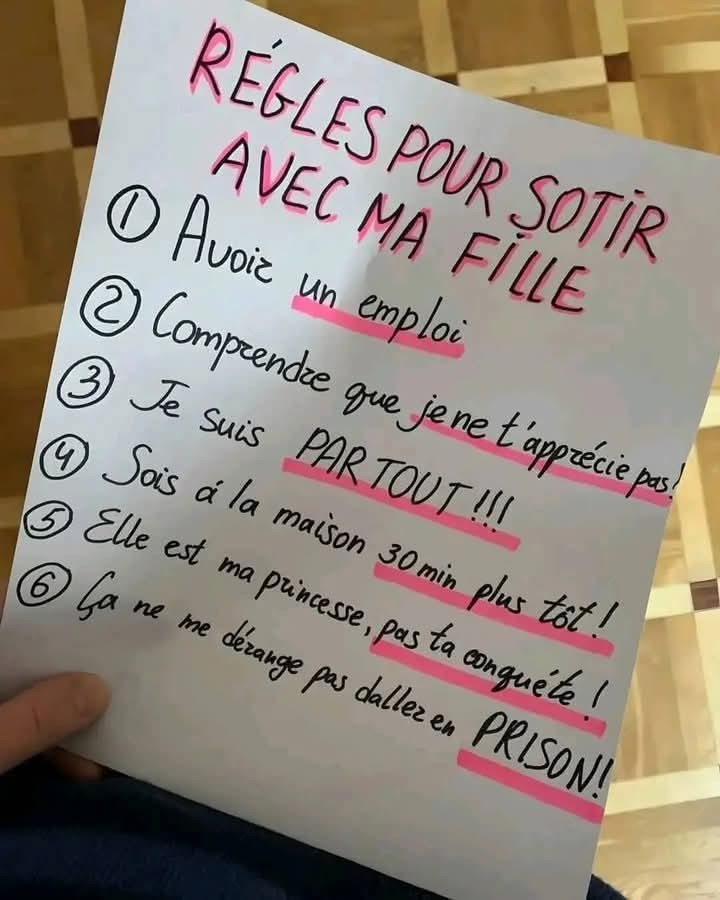 RÉGLES POUR SOTIR
AVEC MA FILLE
① Avoir un emploi
② Comprendre que je ne t'apprécie pas!
③ Je suis PARTOUT!!!
④ Sois á la maison 30min plus tôt!
⑤ Elle est ma princesse, pas ta conquéte!
⑥ Ça ne me dérange pas daller en PRISON!